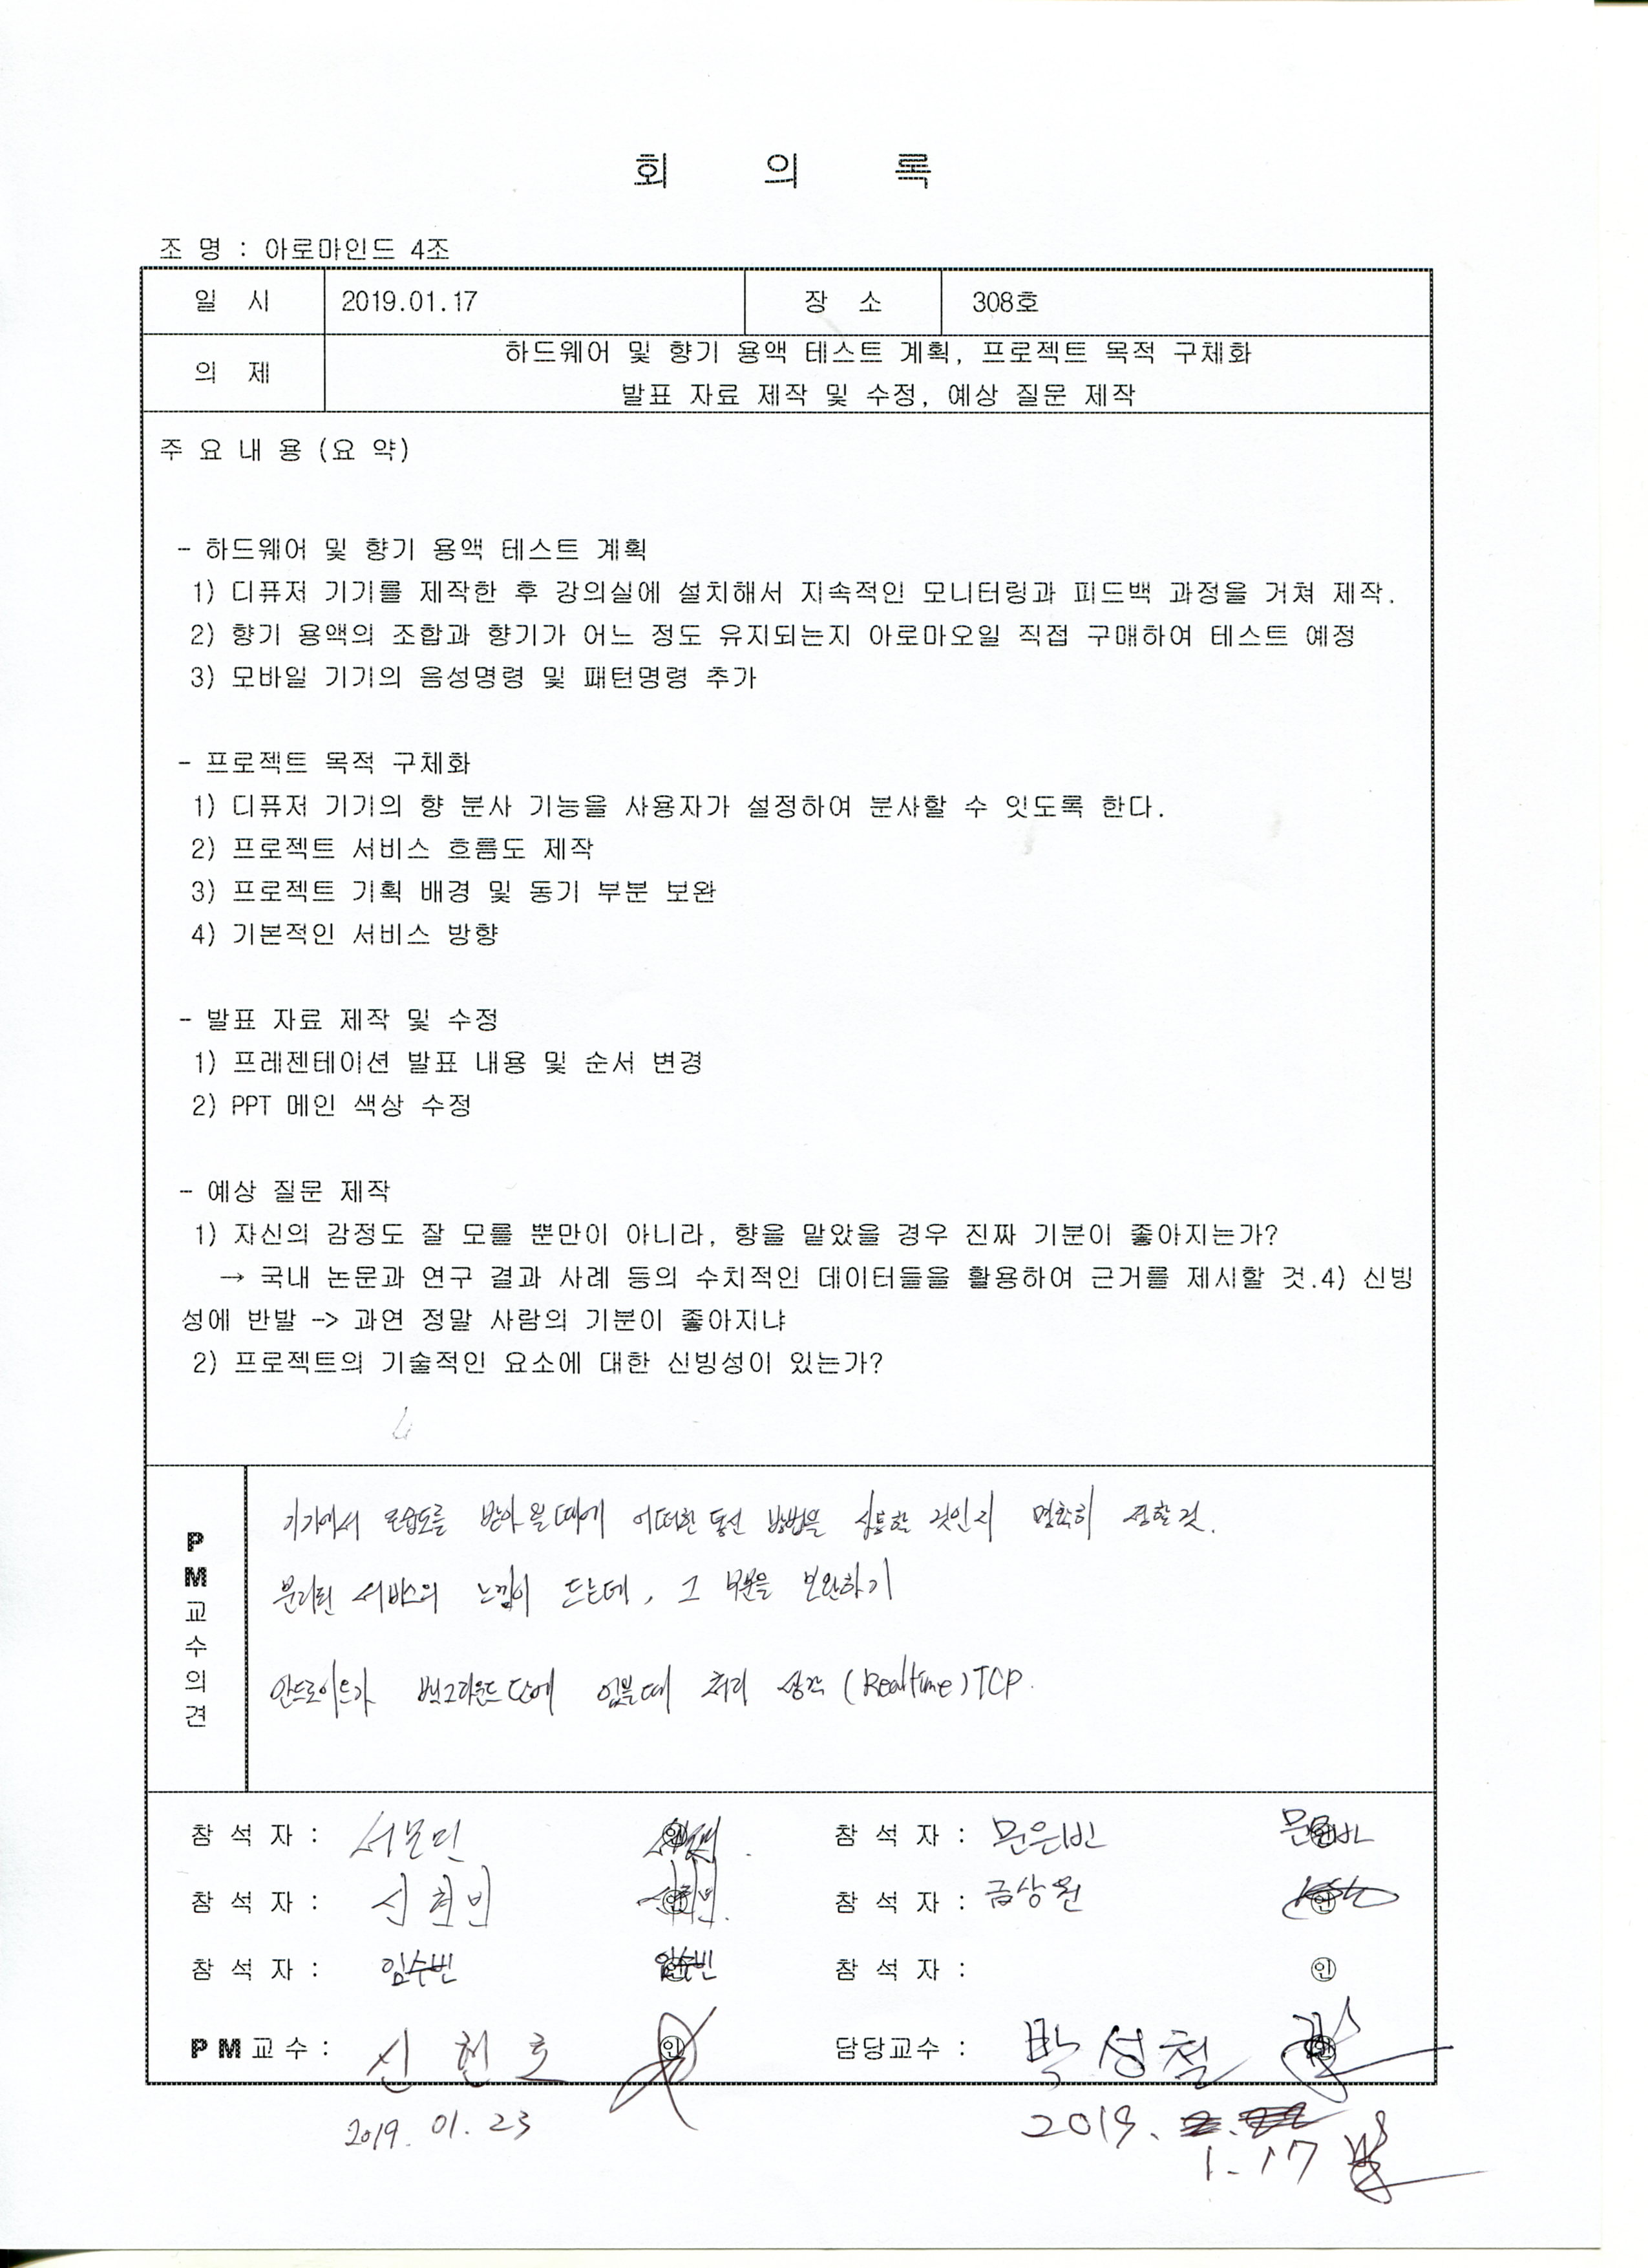 회 의 록
조 명 : 아로마인드 4조
일 시 2019.01.17 장 소 308호
의 제 하드웨어 및 향기 용액 테스트 계획, 프로젝트 목적 구체화
발표 자료 제작 및 수정, 예상 질문 제작
주 요 내 용 (요 약)
- 하드웨어 및 향기 용액 테스트 계획
1) 디퓨저 기기를 제작한 후 강의실에 설치해서 지속적인 모니터링과 피드백 과정을 거쳐 제작.
2) 향기 용액의 조합과 향기가 어느 정도 유지되는지 아로마오일 직접 구매하여 테스트 예정
3) 모바일 기기의 음성명령 및 패턴명령 추가
- 프로젝트 목적 구체화
1) 디퓨저 기기의 향 분사 기능을 사용자가 설정하여 분사할 수 잇도록 한다.
2) 프로젝트 서비스 흐름도 제작
3) 프로젝트 기획 배경 및 동기 부분 보완
4) 기본적인 서비스 방향
- 발표 자료 제작 및 수정
1) 프레젠테이션 발표 내용 및 순서 변경
2) PPT 메인 색상 수정
- 예상 질문 제작
1) 자신의 감정도 잘 모를 뿐만이 아니라, 향을 맡았을 경우 진짜 기분이 좋아지는가?
→ 국내 논문과 연구 결과 사례 등의 수치적인 데이터들을 활용하여 근거를 제시할 것.4) 신빙
성에 반발 -> 과연 정말 사람의 기분이 좋아지냐
2) 프로젝트의 기술적인 요소에 대한 신빙성이 있는가?
PM교수의견
기기에서 온습도를 받아 올때에 어떠한 통신 방법을 사용할 것인지 명확히 정할것.
분리된 서비스의 느낌이 드는데, 그 부분을 보완하기
안드로이드가 백그라운드 단에 없을때 처리 생각 (Realtime) TCP.
참 석 자 : 참 석 자 : 문은빈 문은빈
참 석 자 : 신현빈 참 석 자 : 금상원
참 석 자 : 임수빈 임수빈 참 석 자 : 인
PM교수 : 신현호 인 담당교수 : 박성철
2019. 01. 23 2019.
1. 17